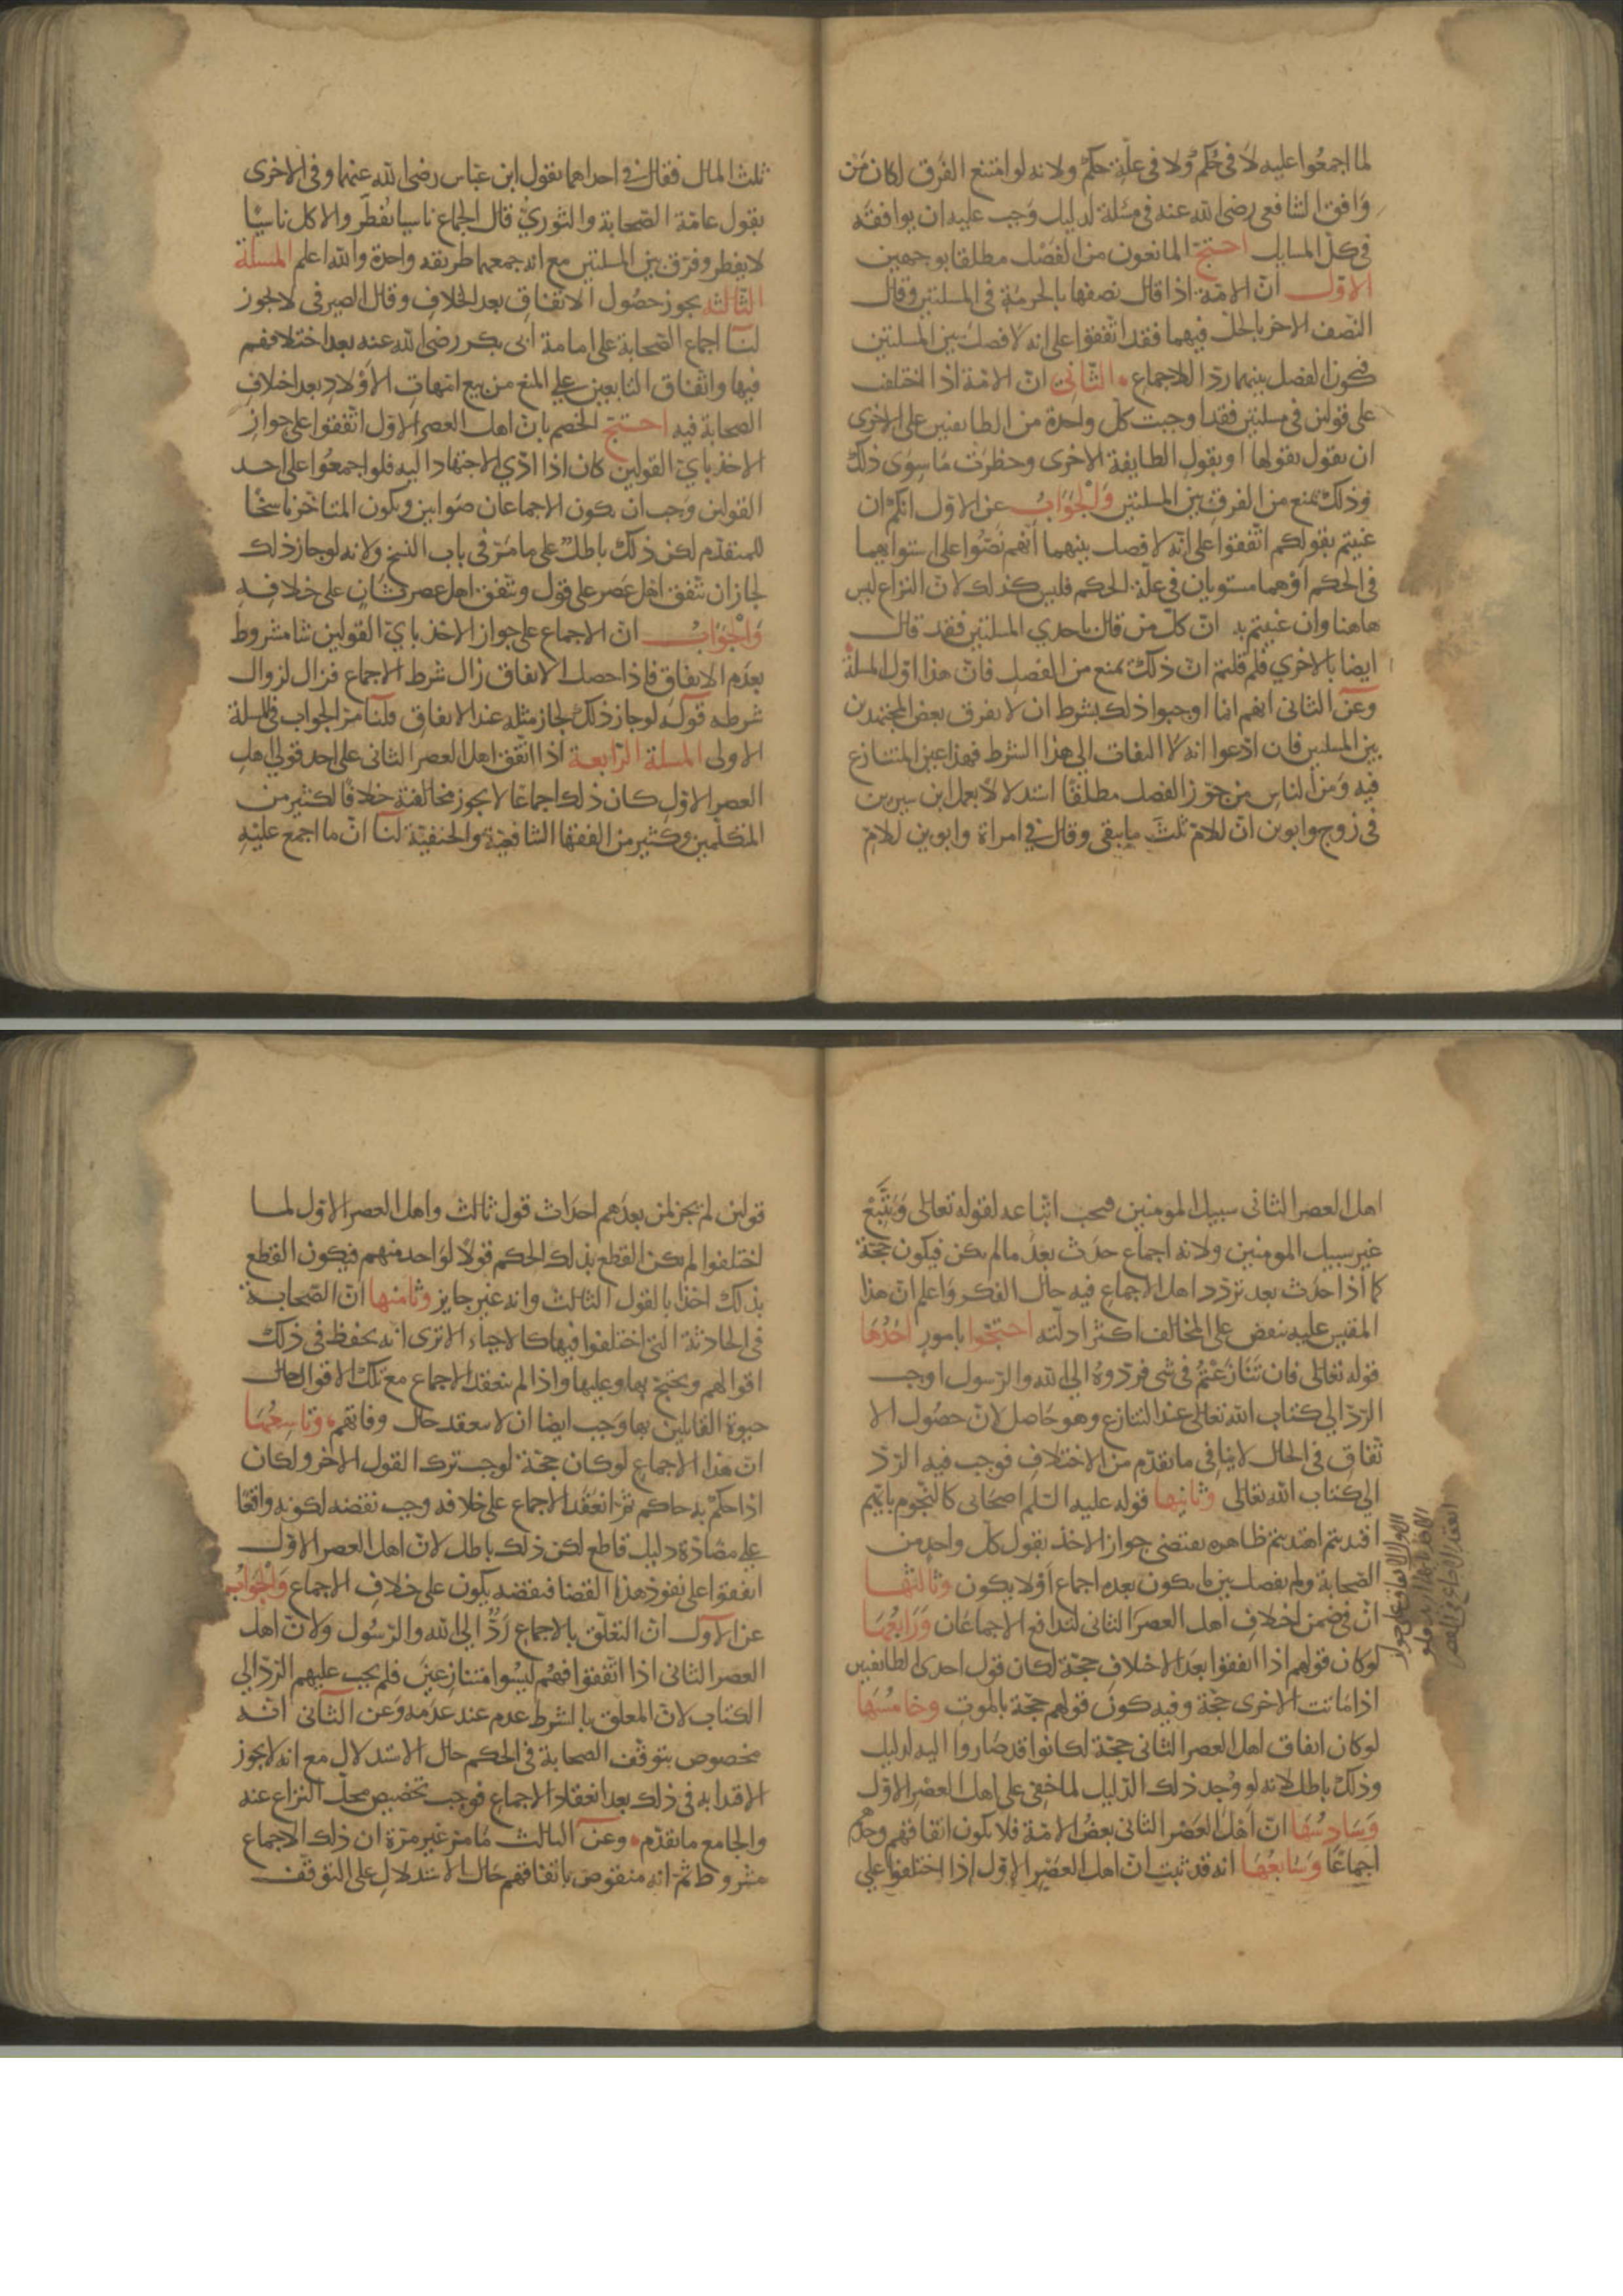 لما اجمعوا عليه لا في حكم ولا في علة حكم ولانه لو امتنع الفرق لكان من
وافق الشافعي رضي الله عنه في مسئلة لدليل وجب عليه ان يوافقه
في كل المسايل احتج المانعون من الفصل مطلقا بوجهين
الاول ان الامة اذا قال نصفها بالحرمة في المسلتين وقال
النصف الاخر بالحل فيهما فقد اتفقوا على انه لا فصل بين المسلتين
فيكون الفصل بينهما ردا للاجماع الثاني ان الامة اذا اختلف
على قولين في مسلتين فقد اوجبت كل واحدة من الطايفتين على الاخرى
ان يقول بقولها او بقول الطايفة الاخرى وحظرت ما سوى ذلك
وذلك يمنع من الفرق بين المسلتين والجواب عن الاول انكم ان
عنيتم بقولكم اتفقوا على انه لا فصل بينهما انهم نصوا على استوايهما
في الحكم او هما مستويان في علة الحكم فليس كذلك لان النزاع ليس
هاهنا وان عنيتم به ان كل من قال باحدي المسلتين فقد قال
ايضا بالاخري فلم قلتم ان ذلك يمنع من الفصل فان هذا اول المسلة
وعن الثاني انهم انما اوجبوا ذلك بشرط ان لا يفرق بعض المجتهدين
بين المسلتين فان ادعوا انه لا التفات الى هذا الشرط فهذا عين المتنازع
فيه ومن الناس من جوز الفصل مطلقا استدلالا بعمل ابن سيرين
في زوج وابوين ان للام ثلث ما يبقى وقال في امراة وابوين للام
ثلث المال فقال في احداهما بقول ابن عباس رضي الله عنهما وفي الاخرى
بقول عامة الصحابة والثوري قال الجماع ناسيا يفطر والاكل ناسيا
لا يفطر وفرق بين المسلتين مع انه جمعهما طريقه واحدة والله اعلم المسلة
الثالثة يجوز حصول الاتفاق بعد الخلاف وقال الصيرفي لا يجوز
لنا اجماع الصحابة على امامة ابي بكر رضي الله عنه بعد اختلافهم
فيها واتفاق التابعين علي المنع من بيع امهات الاولاد بعد اختلاف
الصحابة فيه احتج الخصم بان اهل العصر الاول اتفقوا على جواز
الاخذ باي القولين كان اذا ادي الاجتهاد اليه فلو اجمعوا على احد
القولين وجب ان يكون الاجماعان صوابين ويكون المتاخر ناسخا
للمتقدم لكن ذلك باطل على ما مر في باب النسخ ولانه لو جاز ذلك
لجاز ان تتفق اهل عصر على قول وتتفق اهل عصر ثان على خلافه
والجواب ان الاجماع على جواز الاخذ باي القولين شا مشروط
بعدم الاتفاق فاذا حصل الاتفاق زال شرط الاجماع فزال لزوال
شرطه قوله لو جاز ذلك لجاز مثله عند الاتفاق قلنا مر الجواب في المسلة
الاولى المسلة الرابعة اذا اتفق اهل العصر الثاني على احد قولي اهل
العصر الاول كان ذلك اجماعا لا يجوز مخالفته خلافا لكثير من
المتكلمين وكثير من الفقها الشافعية والحنفية لنا ان ما اجمع عليه
اهل العصر الثاني سبيل المومنين فيجب اتباعه لقوله تعالى ويتبع
غير سبيل المومنين ولانه اجماع حدث بعد ما لم يكن فيكون حجة
كما اذا حدث بعد تردد اهل الاجماع فيه حال الفكر واعلم ان هذا
المقيس عليه ينقض على المخالف اكثر ادلته احتجوا بامور احدها
قوله تعالى فان تنازعتم في شي فردوه الى الله والرسول اوجب
الرد الي كتاب الله تعالى عند التنازع وهو حاصل لان حصول الا
تفاق في الحال لا ينافي ما تقدم من الاختلاف فوجب فيه الرد
الي كتاب الله تعالى وثانيها قوله عليه السلم اصحابي كالنجوم بايهم
اقتديتم اهتديتم ظاهره يقتضي جواز الاخذ بقول كل واحد من
الصحابة ولم يفصل بين ما يكون بعده اجماع او لا يكون وثالثها
ان في ضمن اختلاف اهل العصر الثاني لتدافع الاجماعان ورابعها
لو كان قولهم اذا اتفقوا بعد الاختلاف حجة لكان قول احدى الطايفتين
اذا ماتت الاخرى حجة وفيه كون قولهم حجة بالموت وخامسها
لو كان اتفاق اهل العصر الثاني حجة لكانوا قد صاروا اليه لدليل
وذلك باطل لانه لو وجد ذلك الدليل لما خفي على اهل العصر الاول
وسادسها ان اهل العصر الثاني بعض الامة فلا يكون اتفاقهم وحدهم
اجماعا وسابعها انه قد ثبت ان اهل العصر الاول اذا اختلفوا علي
قولين لم يجز لمن بعدهم احداث قول ثالث واهل العصر الاول لما
اختلفوا لم يكن القطع بذلك الحكم قولا لواحد منهم فيكون القطع
بذلك اخذا بالقول الثالث وانه غير جايز وثامنها ان الصحابة
في الحادثة التي اختلفوا فيها كالاحياء الا ترى انه يحفظ في ذلك
اقوالهم ويحتج بها وعليها واذا لم ينعقد الاجماع مع تلك الاقوال حال
حيوة القايلين بها وجب ايضا ان لا ينعقد حال وفاتهم وتاسعها
ان هذا الاجماع لو كان حجة لوجب ترك القول الاخر ولكان
اذا حكم به حاكم ثم انعقد الاجماع على خلافه وجب نقضه لكونه واقعا
علي مضادة دليل قاطع لكن ذلك باطل لان اهل العصر الاول
اتفقوا على نفوذ هذا القضا فنقضه يكون على خلاف الاجماع والجواب
عن الاول ان التعلق بالاجماع رد الى الله والرسول ولان اهل
العصر الثاني اذا اتفقوا فهم ليسوا متنازعين فلم يجب عليهم الرد الي
الكتاب لان المعلق بالشرط عدم عند عدمه وعن الثاني انه
مخصوص بتوقف الصحابة في الحكم حال الاستدلال مع انه لا يجوز
الاقتدا به في ذلك بعد انعقاد الاجماع فوجب تخصيص محل النزاع عنه
والجامع ما تقدم وعن الثالث ما مر غير مرة ان ذلك الاجماع
مشروط ثم انه منقوض باتفاقهم حال الاستدلال على التوقف